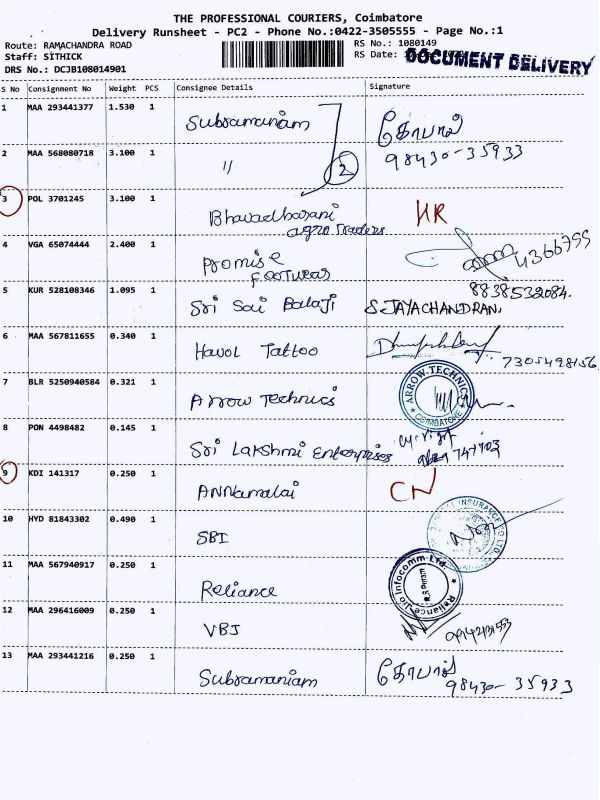 THE PROFESSIONAL COURIERS, Coimbatore
Delivery Runsheet - PC2 - Phone No.:0422-3505555 - Page No.:1
Route: RAMACHANDRA ROAD
RS No.: 1080149
Staff: SITHICK
RS Date:
DOCUMENT DELIVERY
DRS No.: DCJB108014901
S No Consignment No Weight PCS Consignee Details Signature
1 MAA 293441377 1.530 1 Subramaniam கோபால்
98430-35933
2 MAA 568080718 3.100 1 〃 2
3 POL 3701245 3.100 1 Bhavadharani HR
agro Traders
4 VGA 65074444 2.400 1 Promise
Footwear
5 KUR 528108346 1.095 1 Sri Sai Balaji S.JAYACHANDRAN.
8838532084.
6 MAA 567811655 0.340 1 Hawol Tattoo
7305498156
7 BLR 5250940584 0.321 1 Arrow Technics
ARROW TECHNICS
COIMBATORE
8 PON 4498482 0.145 1 Sri Lakshmi Enterprises
9 KDI 141317 0.250 1 ANNamalai CN
10 HYD 81843302 0.490 1 SBI
INSURANCE CO LTD
11 MAA 567940917 0.250 1 Reliance
Reliance Jio Infocomm Ltd.
12 MAA 296416009 0.250 1 VBJ
13 MAA 293441216 0.250 1 Subramaniam கோபால்
98430-35933